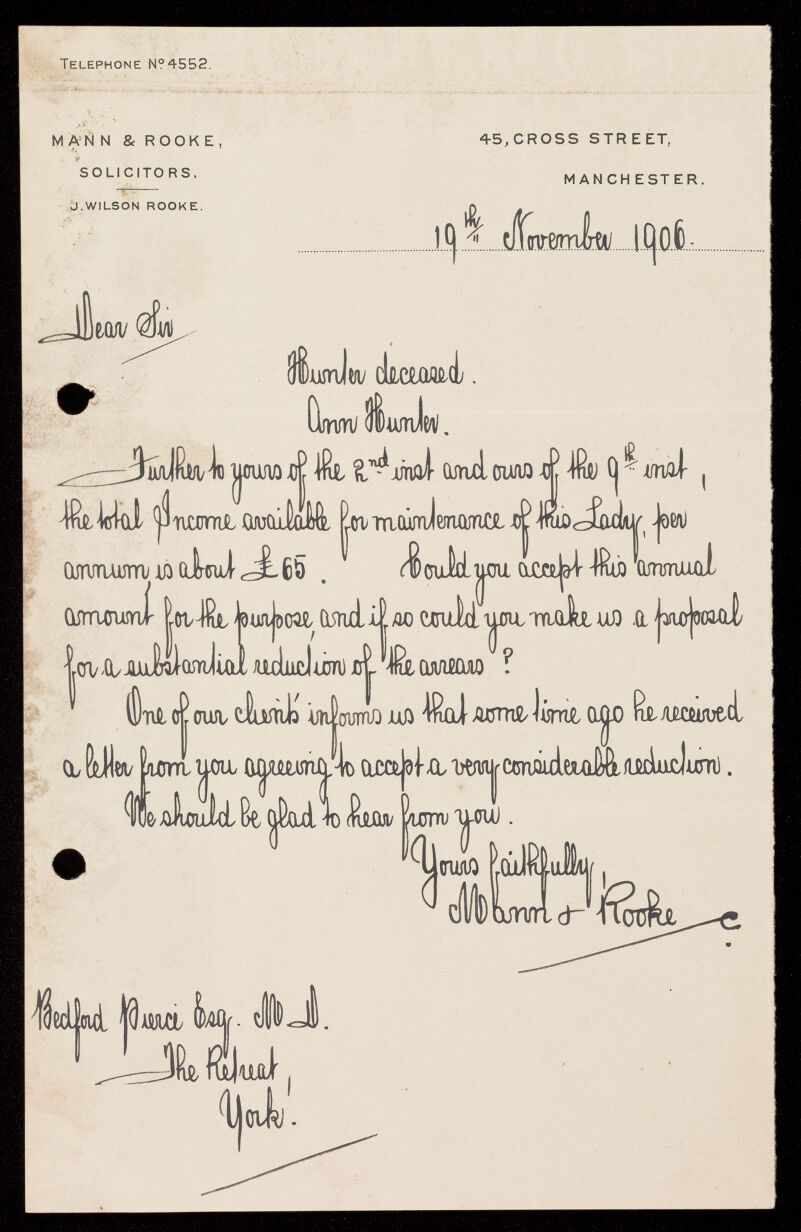 TELEPHONE Nº 4552.
MANN & ROOKE,
SOLICITORS.
J. WILSON ROOKE.
45, CROSS STREET,
MANCHESTER.
19th November 1906.
Dear Sir
Hunter deceased.
Ann Hunter.
Further to yours of the 2nd inst and ours of the 9th inst,
the total Income available for maintenance of this Lady, per
annum, is about £65. Could you accept this annual
amount for the purpose, and if so could you make us a proposal
for a substantial reduction of the arrears?
One of our clients informs us that some time ago he received
a letter from you agreeing to accept a very considerable reduction.
We should be glad to hear from you.
Yours faithfully,
Mann & Rooke
Bedford Pierce Esq. M D.
The Retreat,
York.